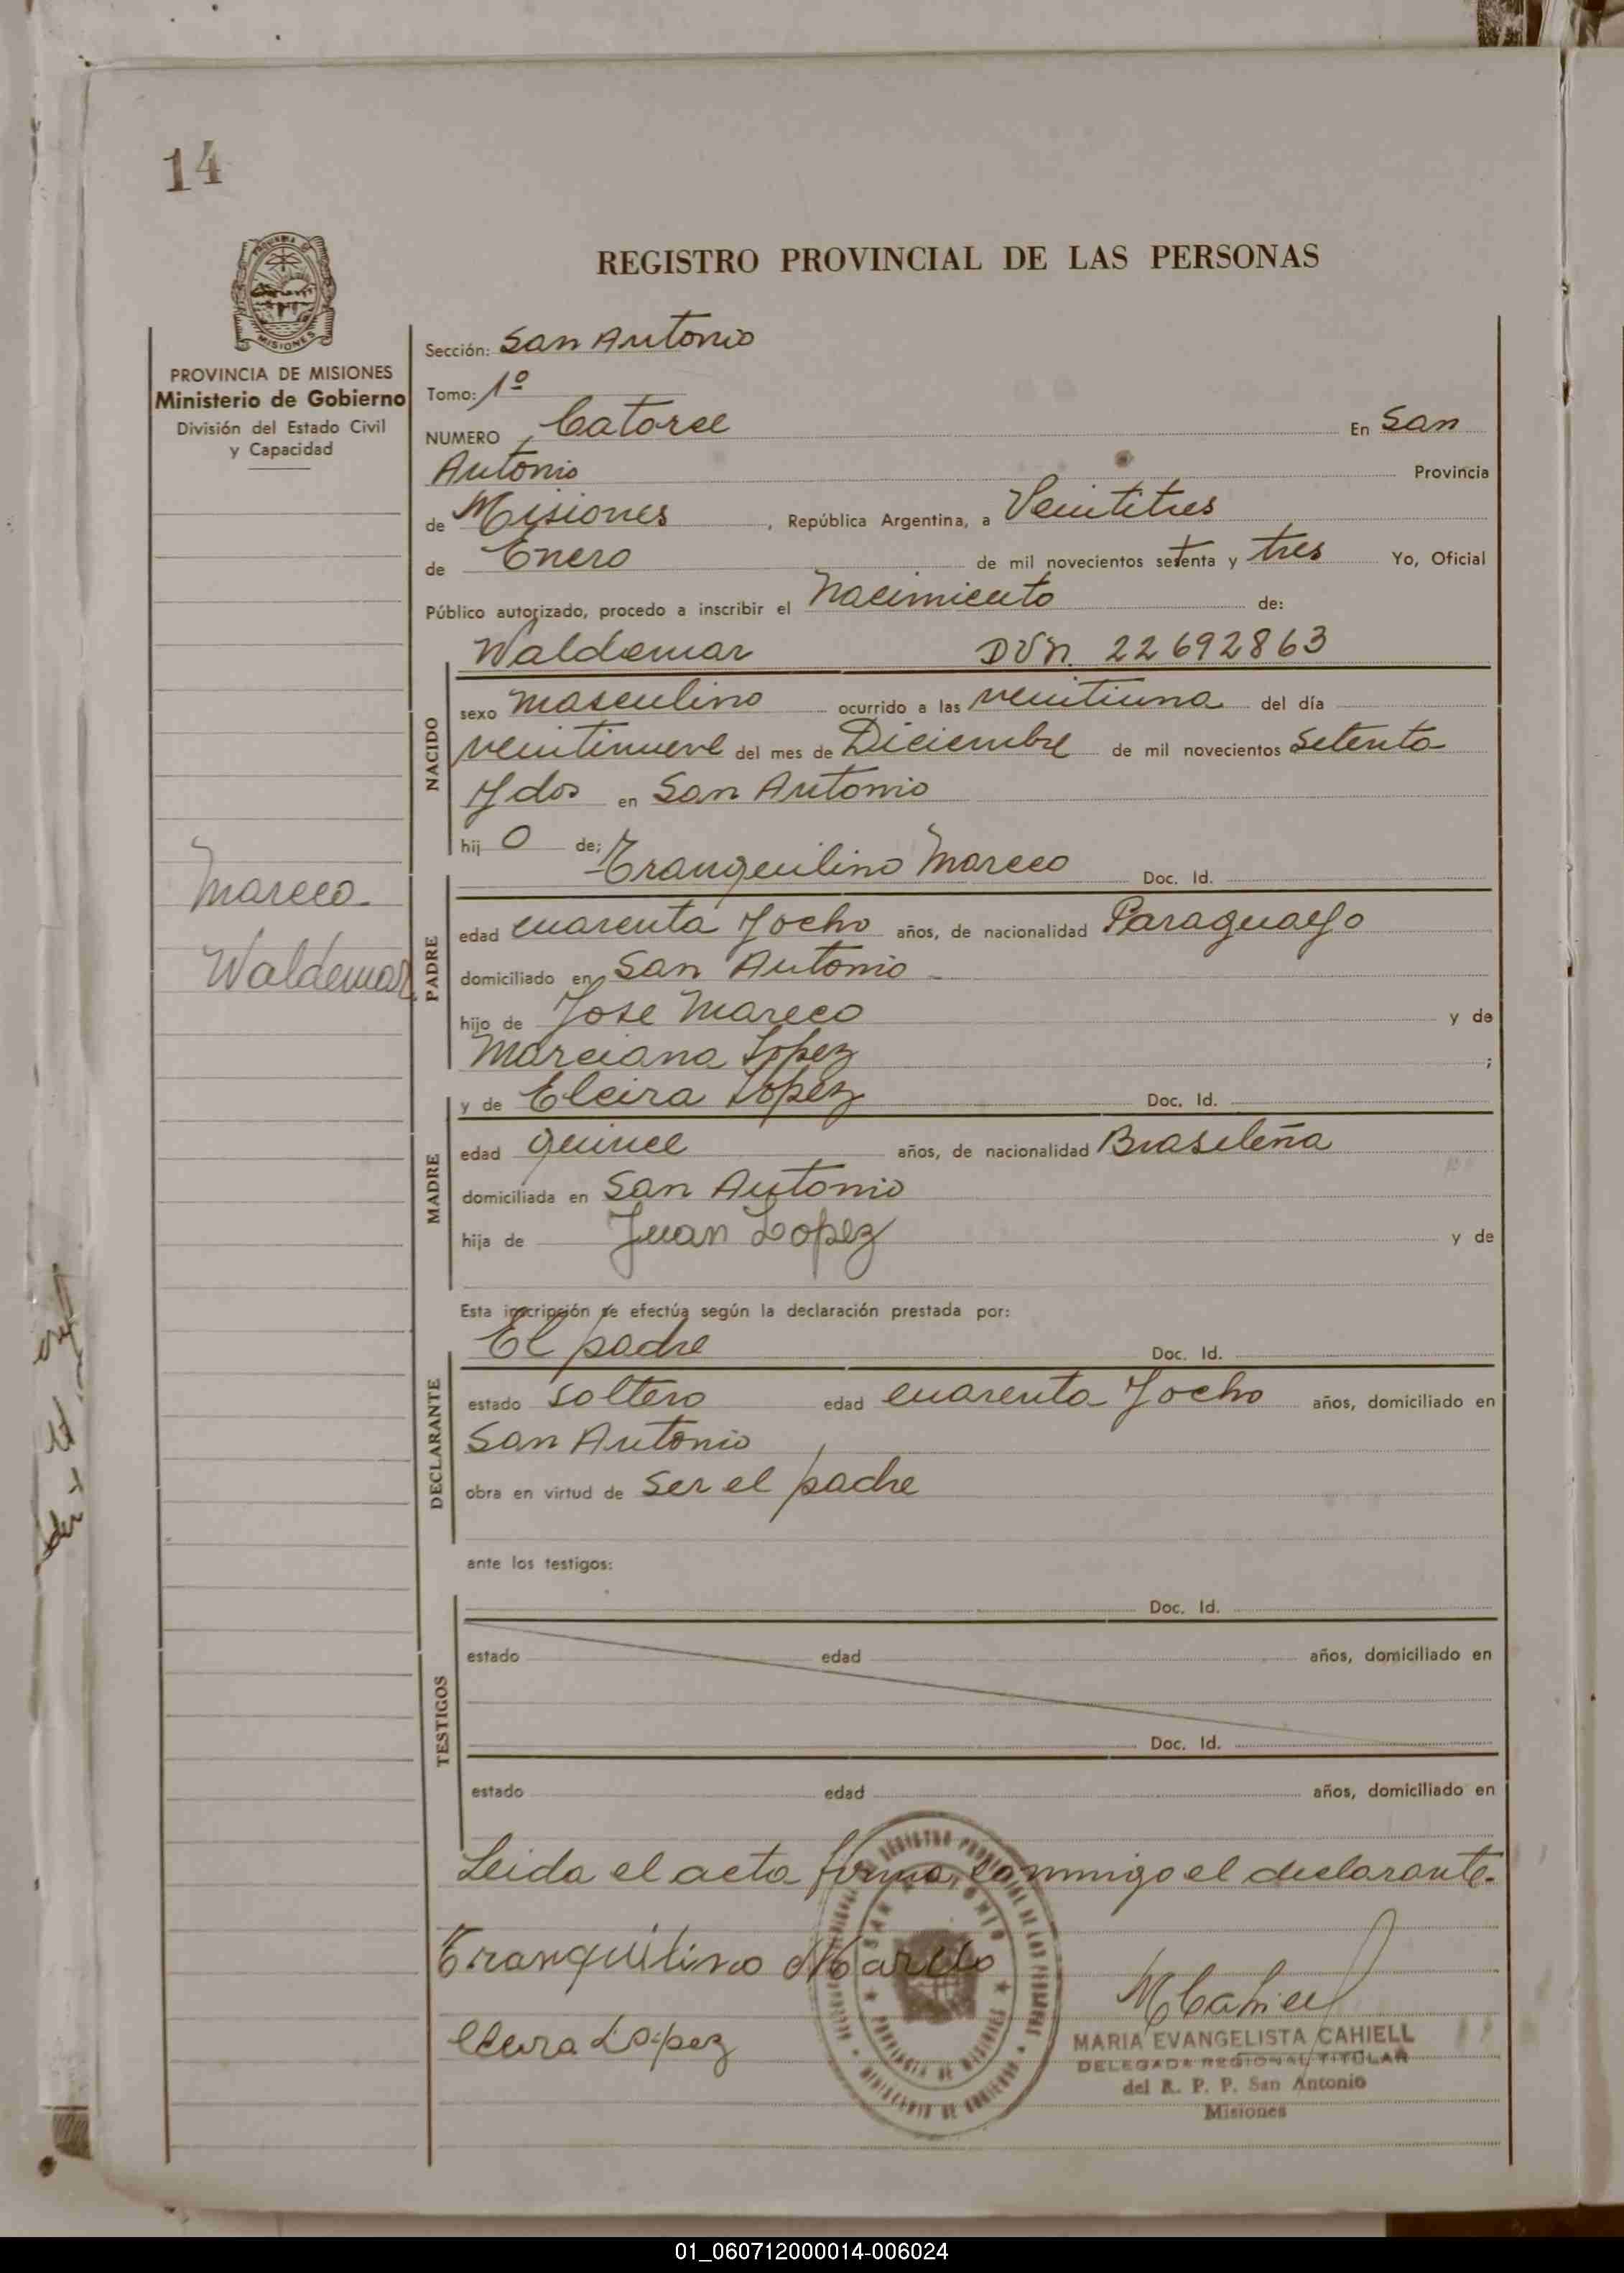 14
REGISTRO PROVINCIAL DE LAS PERSONAS
MISIONES
PROVINCIA DE MISIONES
Ministerio de Gobierno
División del Estado Civil
y Capacidad
Mareco
Waldemar
Sección: San Antonio
Tomo: 1º
NUMERO Catorce En San
Antonio Provincia
de Misiones, República Argentina, a Veintitres
de Enero de mil novecientos setenta y tres Yo, Oficial
Público autorizado, procedo a inscribir el Nacimiento de:
Waldemar DVN. 22692863
NACIDO
sexo masculino ocurrido a las veintiuna del día
veintinueve del mes de Diciembre de mil novecientos Setenta
Y dos en San Antonio
hij o de; Tranquilino Mareco Doc. Id.
PADRE
edad cuarenta Y ocho años, de nacionalidad Paraguayo
domiciliado en San Antonio
hijo de Jose Mareco y de
Marciana Lopez ;
y de Elcira Lopez Doc. Id.
MADRE
edad quince años, de nacionalidad Brasileña
domiciliada en San Antonio
hija de Juan Lopez y de
Esta inscripción se efectúa según la declaración prestada por:
El padre Doc. Id.
DECLARANTE
estado soltero edad cuarenta Y ocho años, domiciliado en
San Antonio
obra en virtud de Ser el padre
ante los testigos:
Doc. Id.
TESTIGOS
estado edad años, domiciliado en
Doc. Id.
estado edad años, domiciliado en
Leida el acta firma conmigo el declarante.
Tranquilino Mareco
Lopez
MCahiell
MARIA EVANGELISTA CAHIELL
DELEGADA REGIONAL TITULAR
del R. P. P. San Antonio
Misiones
SAN ANTONIO
PROVINCIA DE MISIONES
MINISTERIO DE GOBIERNO
01_060712000014-006024